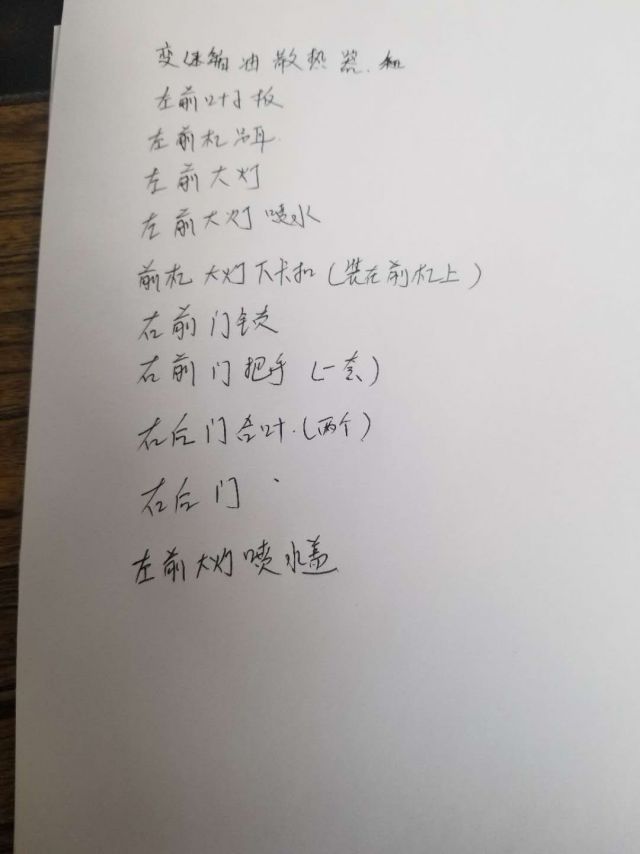 变速箱油散热器.
左前叶子板
左前杠吊耳.
左前大灯
左前大灯喷水
前杠大灯下卡扣(装在前杠上)
右前门锁
右前门把手(一套)
右后门合叶.(两个)
右后门
左前大灯喷水盖